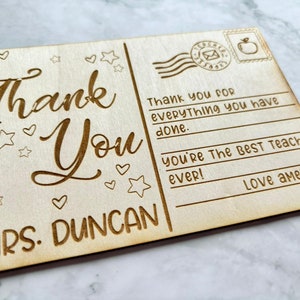 Thank
You
MRS. DUNCAN
THANK YOU FOR
EVERYTHING YOU HAVE
DONE.
YOU'RE THE BEST TEACH
EVER!
LOVE AME